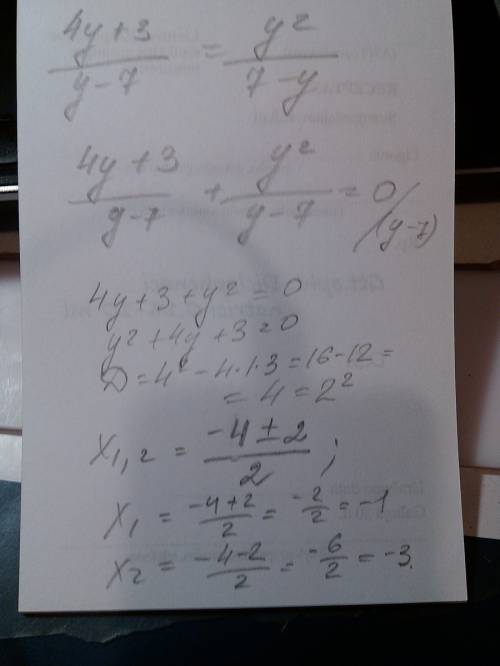 4y+3/y-7 = y²/7-y
4y+3/y-7 + y²/y-7 = 0 /(y-7)
4y+3+y²=0
y²+4y+3=0
D=4²-4·1·3=16-12=
=4=2²
X1,2 = -4±2/2;
X1 = -4+2/2 = -2/2 = -1
X2 = -4-2/2 = -6/2 = -3.